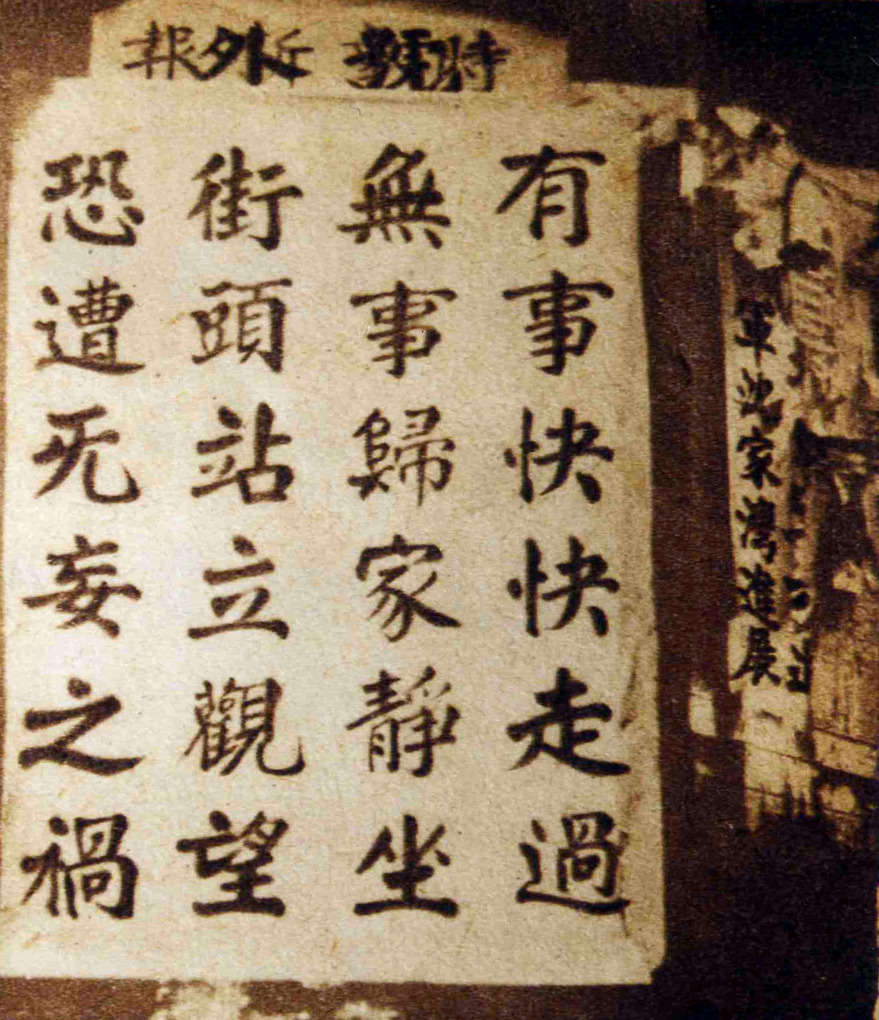 外報
有事快快走過
無事歸家靜坐
街頭站立觀望
恐遭旡妄之禍
軍 家灣進展